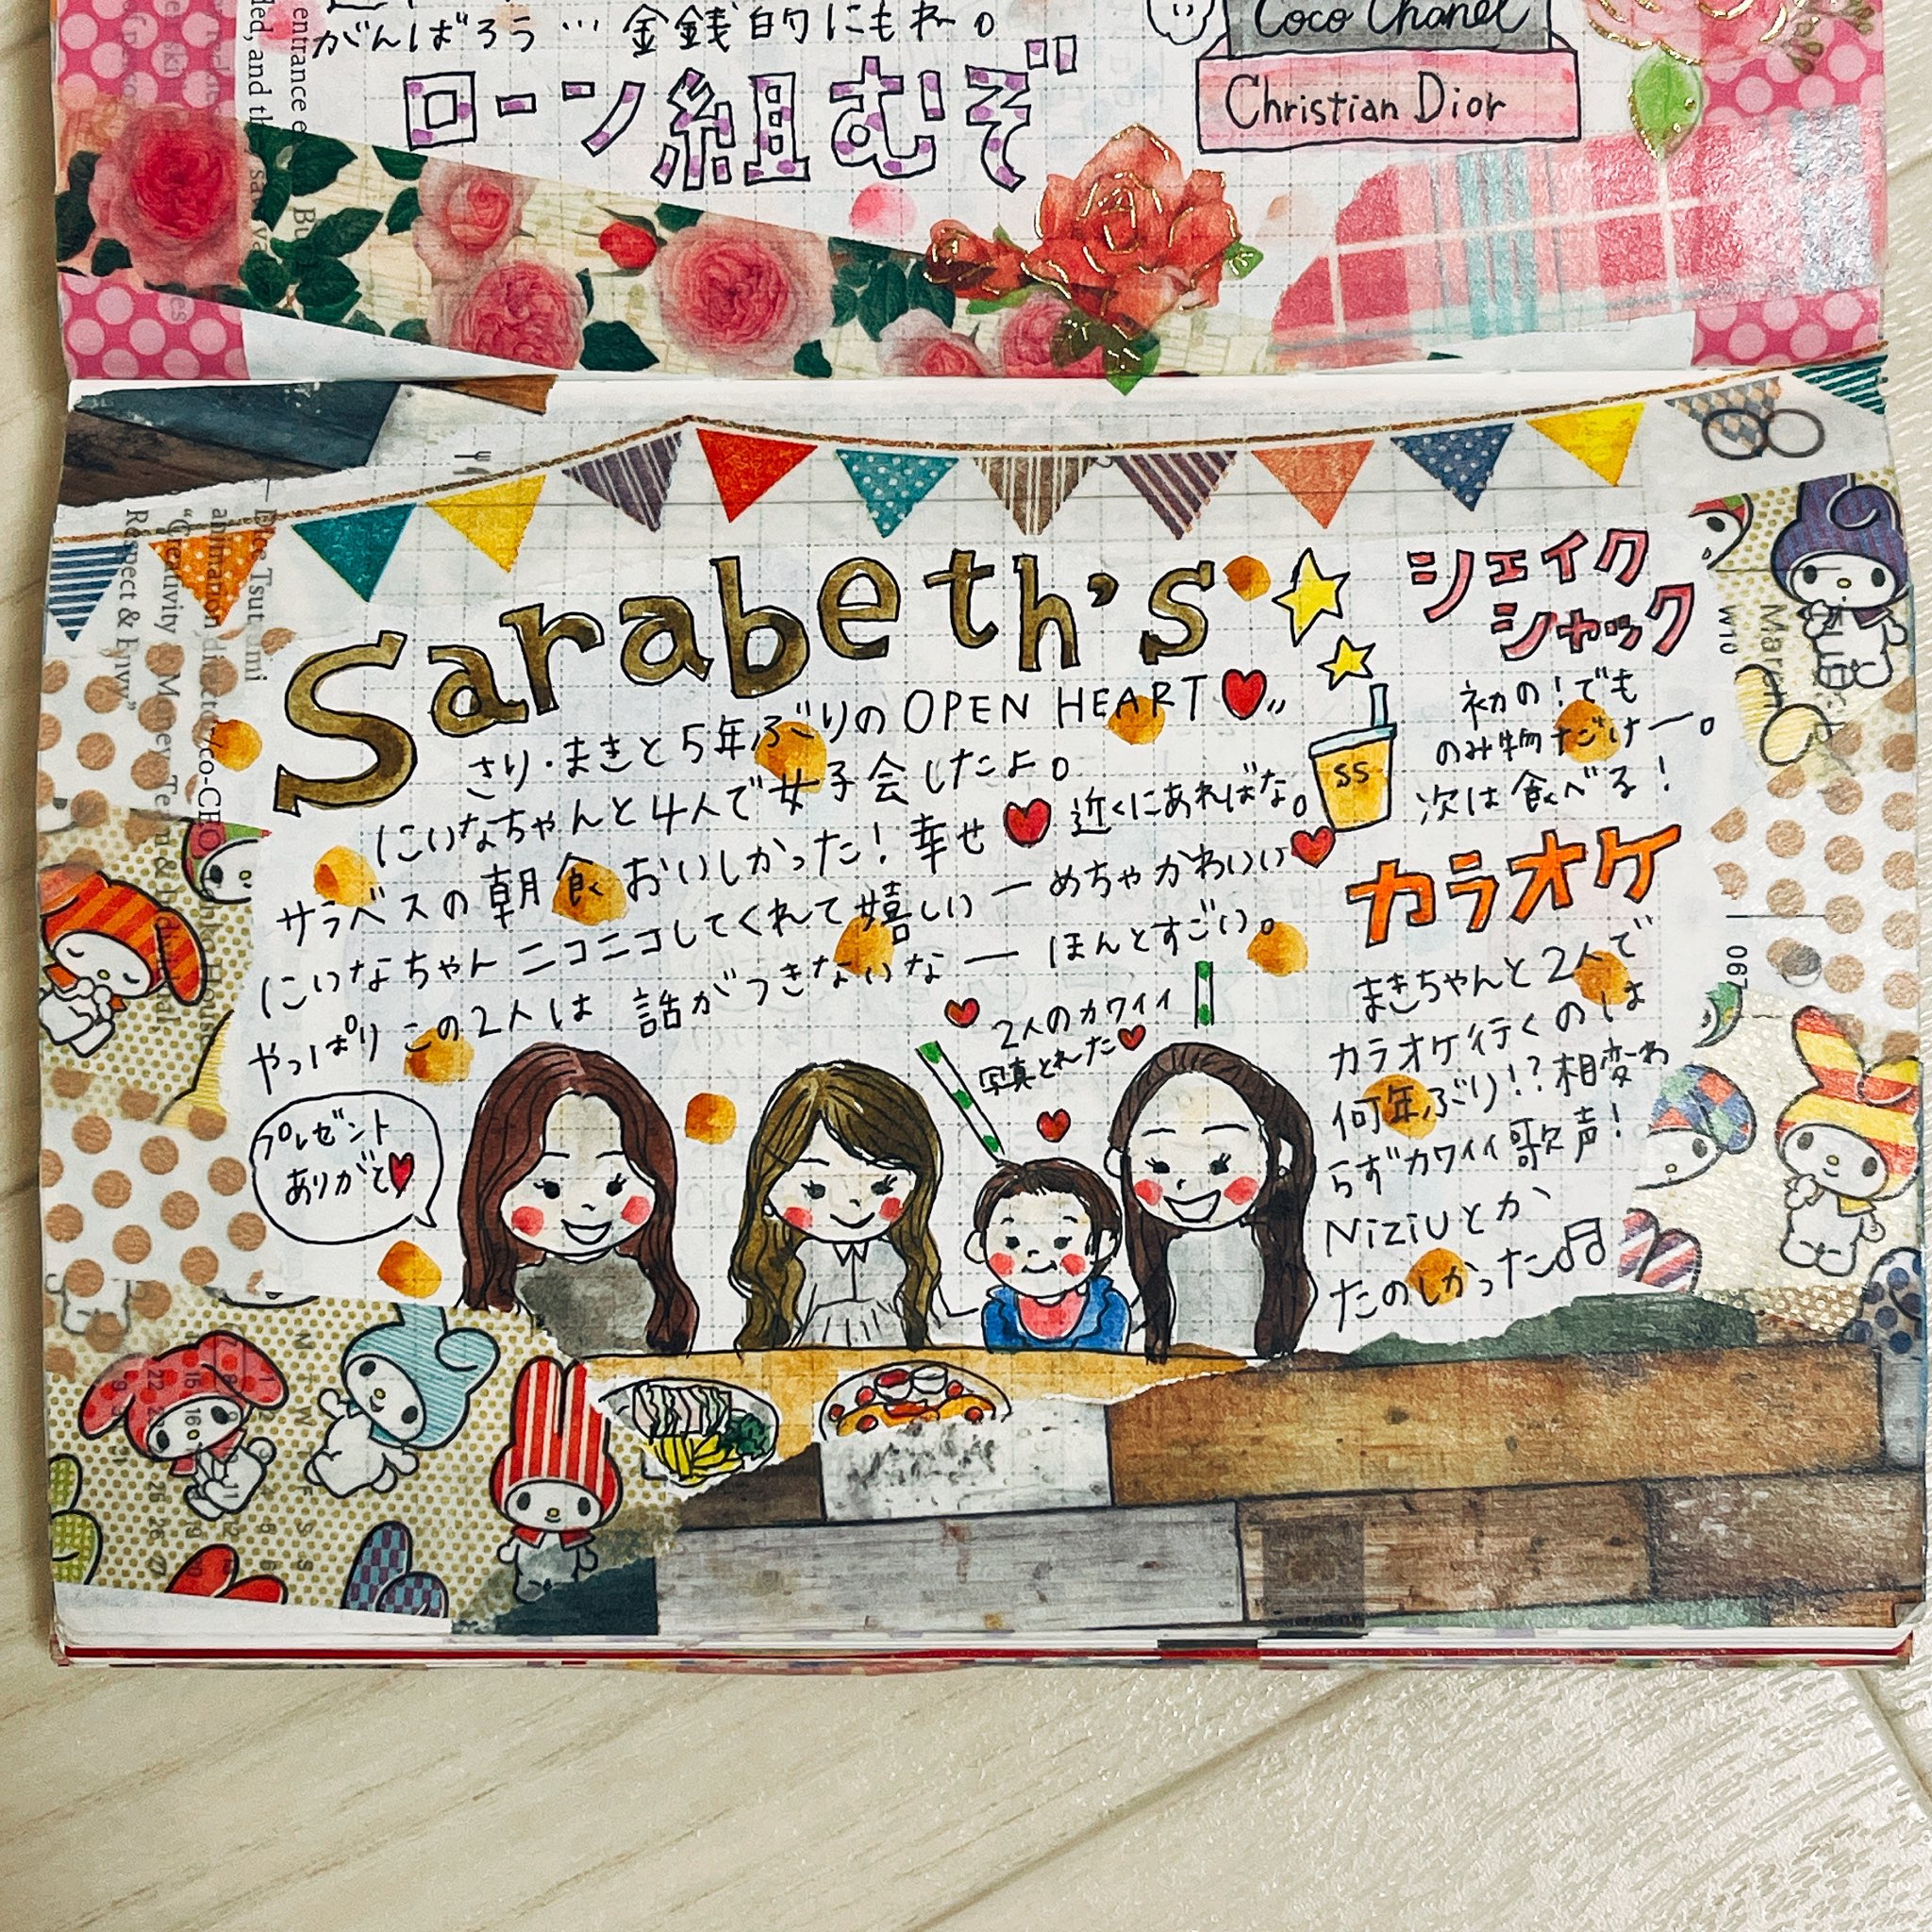 がんばろう… 金銭的にもねー。
ローン組むぞ"
Coco Chanel
Christian Dior
Sarabeth's
さり・まきと5年ぶりの OPEN HEART
にいなちゃんと4人で女子会したよ。
サラベスの朝食おいしかった！幸せ 近くにあればな。
にいなちゃん ニコニコしてくれて嬉しいー めちゃかわいい
やっぱり この2人は 話がつきないなー ほんとすごい。
プレゼント
ありがと
2人のカワイイ
写真とれた
シェイク
シャック
初の！でも
のみ物だけー。
次は食べる！
SS
カラオケ
まきちゃんと2人で
カラオケ行くのは
何年ぶり！？相変わ
らずカワイイ歌声！
NiZiUとか
たのしかった
entrance
ded, and th
animation director/co-CEO
"Creativity Money, Te
Respect & Envy"
W10
060